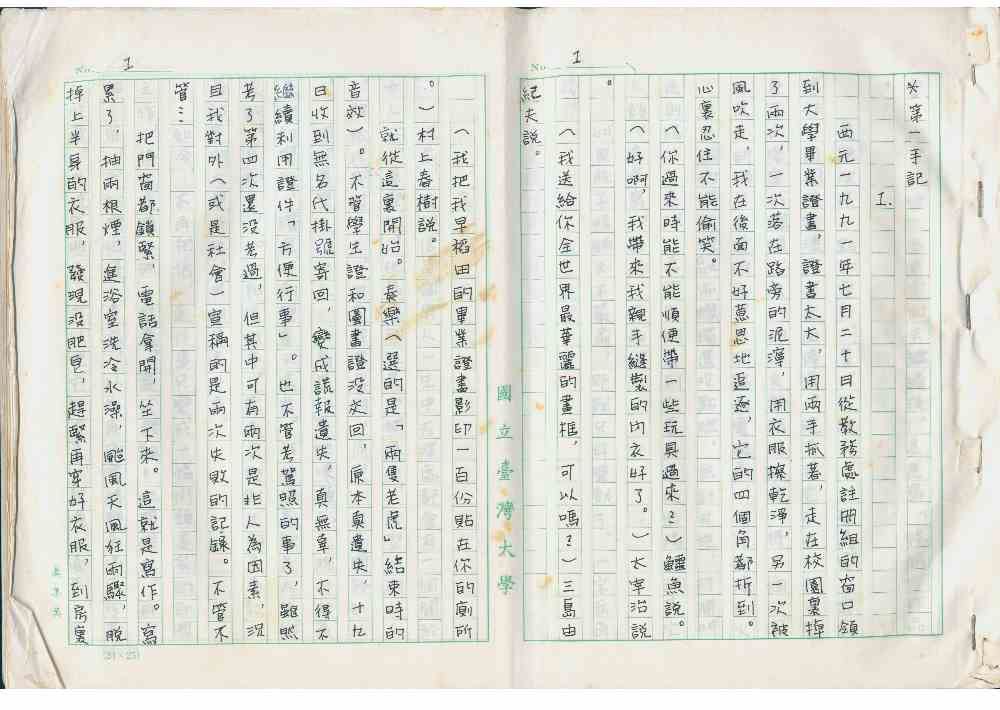 No. 1
※第一手記
1.
西元一九九一年七月二十日從教務處註冊組的窗口領
到大學畢業證書，證書太大，用兩手抓著，走在校園裏掉
了兩次，一次落在路旁的泥濘，用衣服擦乾淨，另一次被
風吹走，我在後面不好意思地追逐，它的四個角都折到。
心裏忍住不能偷笑。
（你過來時能不能順便帶一些玩具過來？）鱷魚說。
（好啊，我帶來我親手縫製的內衣好了。）太宰治說
。
（我送給你全世界最華麗的畫框，可以嗎？）三島由
紀夫說。
國立臺灣大學
No. 1
（我把我早稻田的畢業證書影印一百份貼在你的廁所
。）村上春樹說。
就從這裏開始。奏樂（選的是「兩隻老虎」結束時的
音效）。不管學生證和圖書證沒交回，原本真遺失，十九
日收到無名氏掛號寄回，變成謊報遺失，真無辜，不得不
繼續利用證件「方便行事」。也不管考駕照的事了，雖然
考了第四次還沒考過，但其中可有兩次是非人為因素，況
且我對外（或是社會）宣稱的是兩次失敗的記錄。不管不
管…
把門窗都鎖緊，電話拿開，坐下來。這就是寫作。寫
累了，抽兩根煙，進浴室洗冷水澡，颱風天風狂雨驟，脫
掉上半身的衣服，發現沒肥皂，趕緊再穿好衣服，到房裏
(24×25)